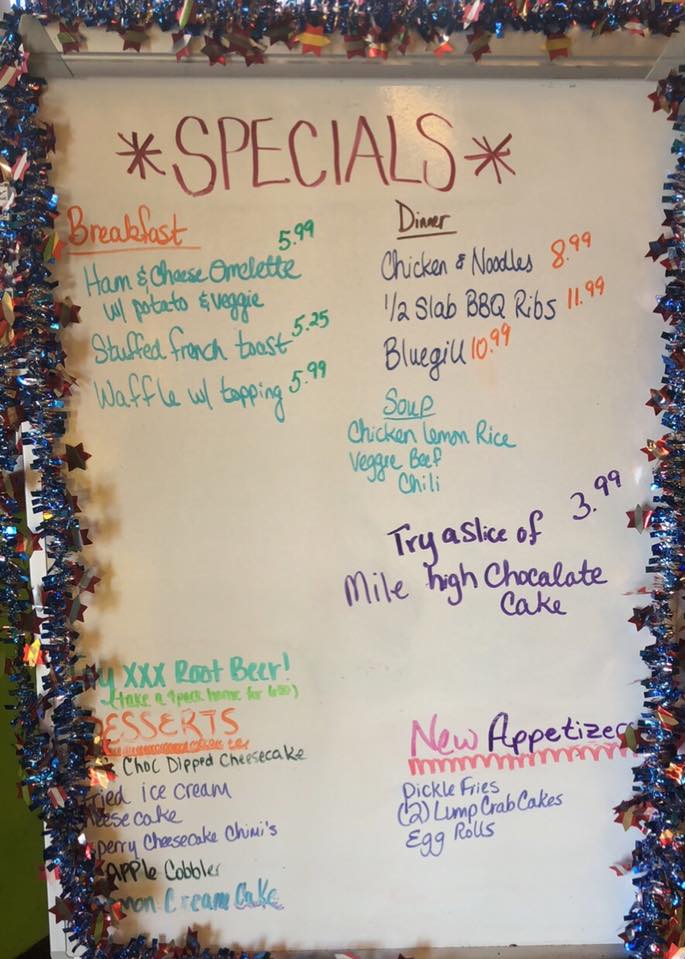 *SPECIALS*
Breakfast
5.99
Ham & Cheese Omelette
w/ potato & veggie
Stuffed french toast 5.25
Waffle w/ topping 5.99
Dinner
Chicken & Noodles 8.99
1/2 Slab BBQ Ribs 11.99
Bluegill 10.99
Soup
Chicken Lemon Rice
Veggie Beef
Chili
Try a slice of 3.99
Mile high Chocalate
Cake
XXX Root Beer!
(take a 4pack home for
ESSERTS
Choc Dipped Cheesecake
ried ice cream
eesecake
perry Cheesecake Chimi's
APPle Cobbler
mon Cream Cake
New Appetizer
Pickle Fries
(2) Lump Crab Cakes
Egg Rolls